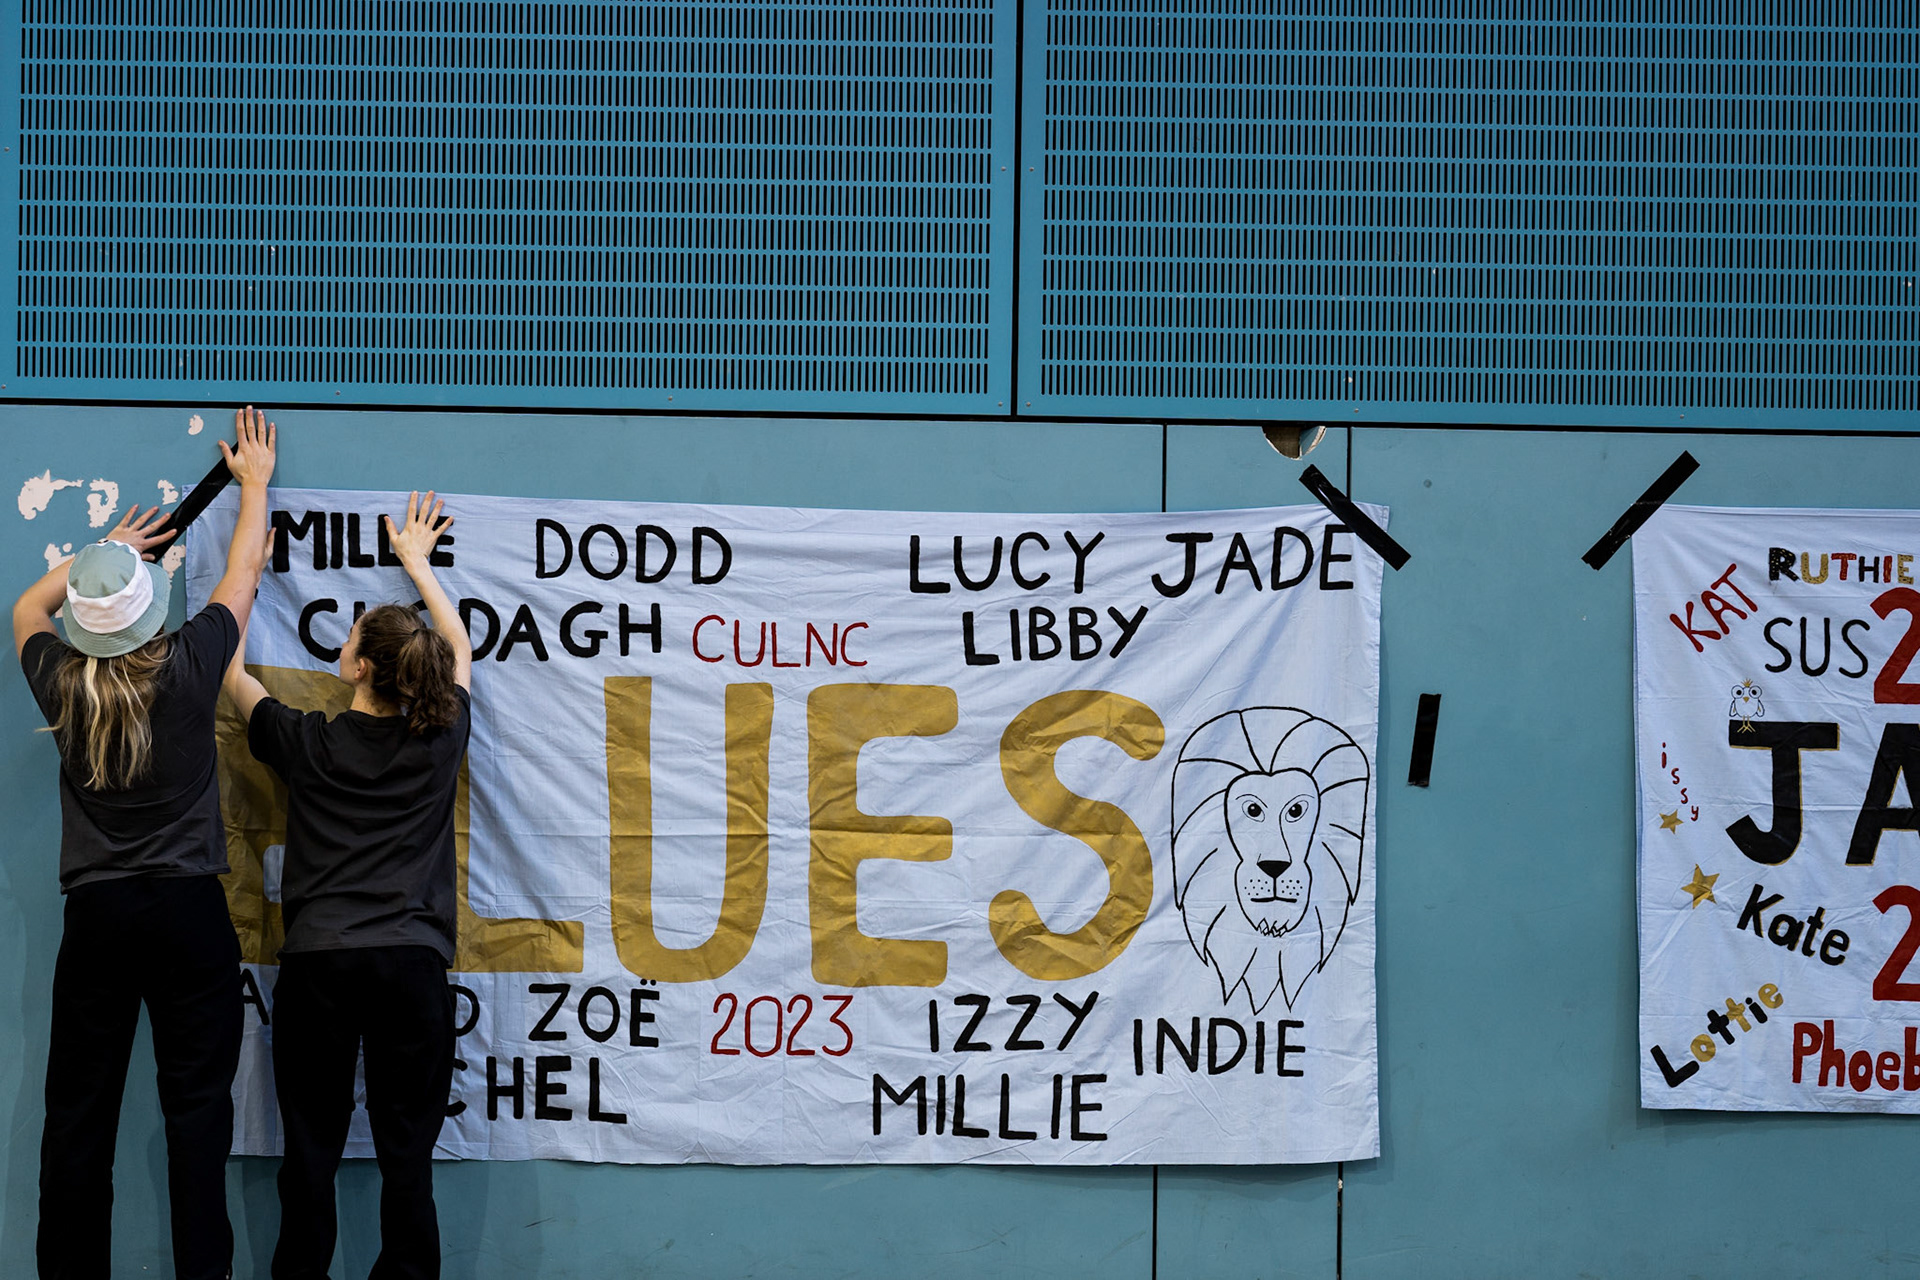 MILLIE DODD LUCY JADE
CLODAGH CULNC LIBBY
BLUES
ZOË 2023 IZZY INDIE
CHEL MILLIE
RUTHIE
KAT
SUS
issy
Kate
Lottie